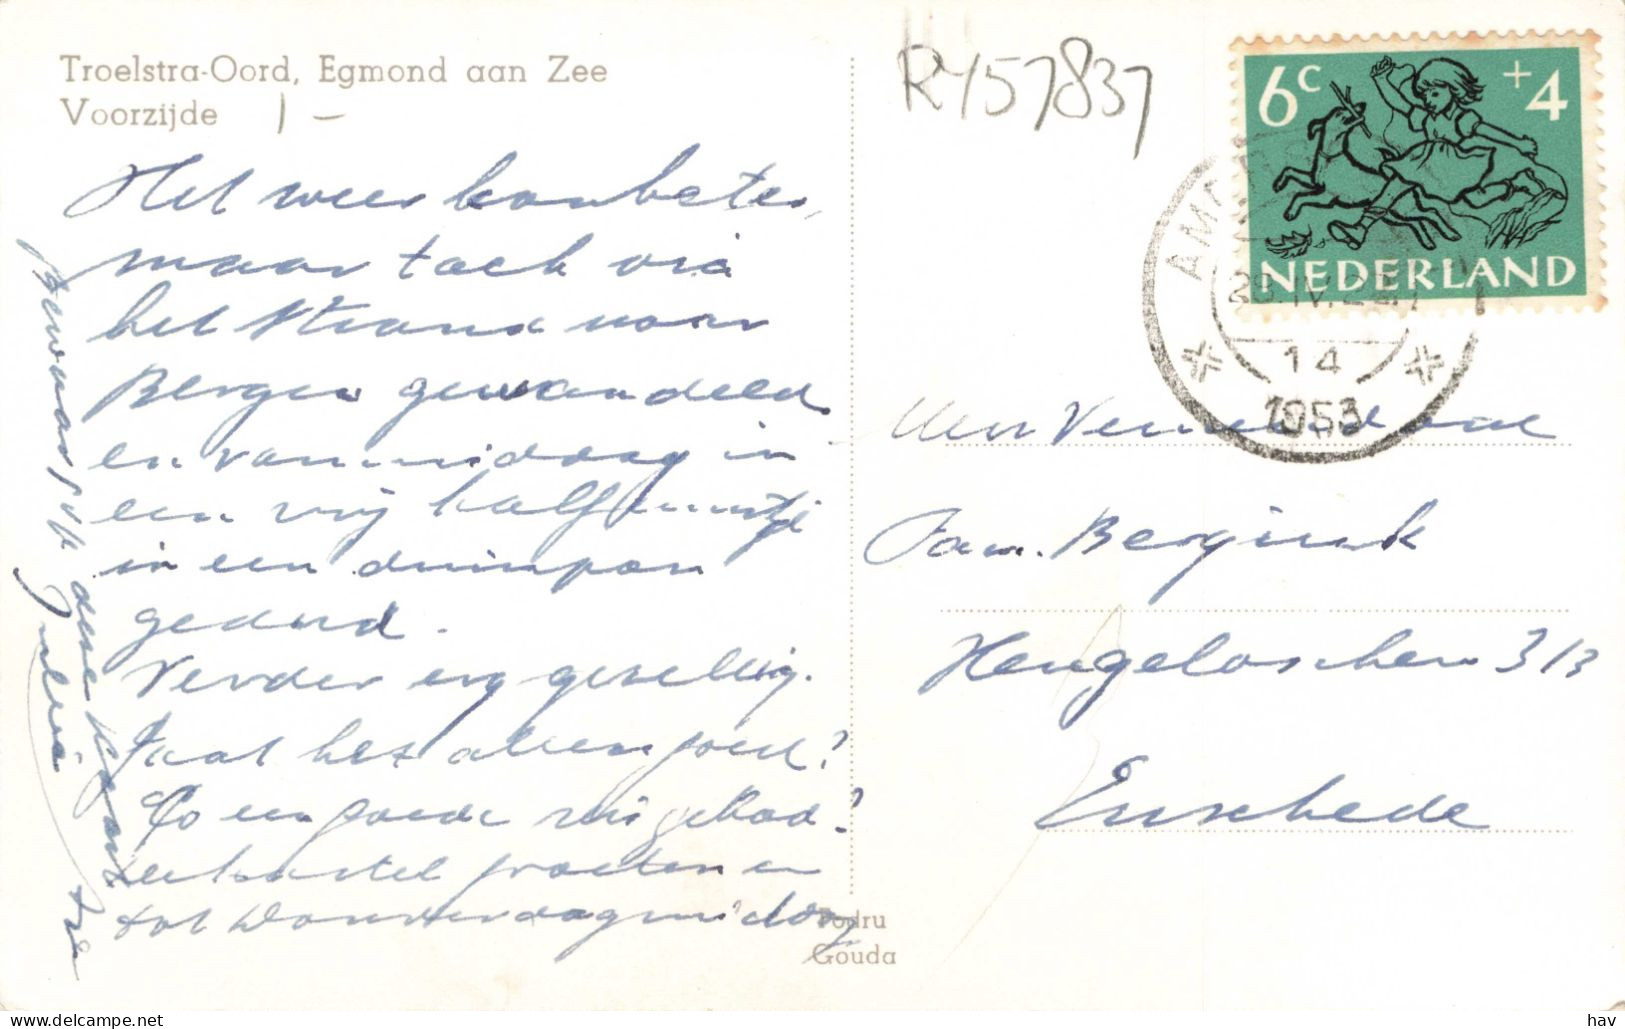 Troelstra-Oord, Egmond aan Zee
Voorzijde 1 -
R457837
6c +4
NEDERLAND
14
1953
Het weer kon beter,
maar toch via
het strand naar
Bergen gewandeld
en vanmiddag in
een vrij half uurtje
in een duinpan
gedut.
Verder erg gezellig.
Gaat het allen goed?
Zo een goede reis gehad?
hartel groeten en
tot Donderdagmiddag
Bewaar jij deze kaart
Fam. Bergink
Hengeloschestr 313
Enschede
Fodru
Gouda
delcampe.net
hav